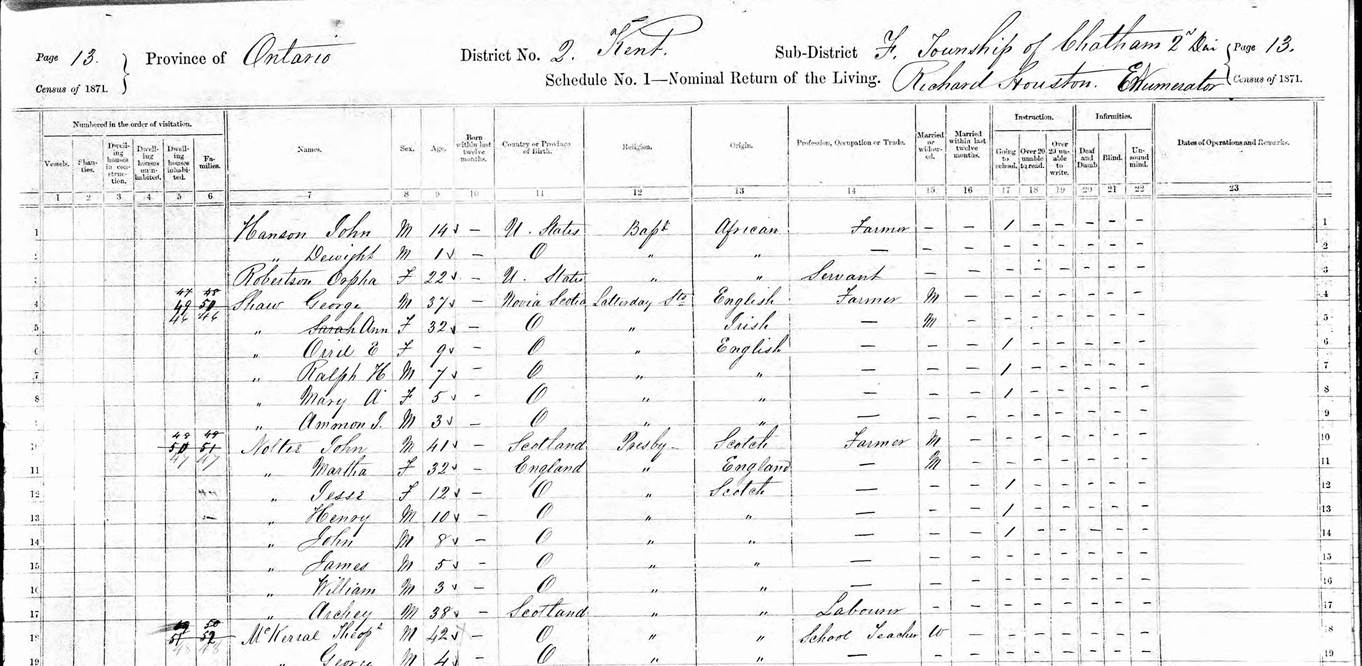 Page 13. Province of Ontario District No. 2. Kent. Sub-District F. Township of Chatham 2n Div Page 13.
Census of 1871. Schedule No. 1—Nominal Return of the Living. Richard Houston. Enumerator Census of 1871.
Numbered in the order of visitation. Names. Sex. Age. Born within last twelve months. Country or Province of Birth. Religion. Origin. Profession, Occupation or Trade. Married or widowed. Married within last twelve months. Instruction. Infirmities. Dates of Operations and Remarks.
Vessels. Shanties. Dwelling houses in construction. Dwelling houses uninhabited. Dwelling houses inhabited. Families. Going to school. Over 20 unable to read. Over 20 unable to write. Deaf and Dumb. Blind. Unsound mind.
1 2 3 4 5 6 7 8 9 10 11 12 13 14 15 16 17 18 19 20 21 22 23
1 Hanson John M 14 – U. States Bapt African Farmer – – 1 – – – – – 1
2 " Dewight M 1 – O " " — – – – – – – – – 2
3 Robertson Orpha F 22 – U. States " " Servant – – – – – – – – 3
4 49 50 Shaw George M 37 – Novia Scotia Latterday Sts English Farmer M – – – – – – – 4
5 46 46 " Sarah Ann F 32 – O " Irish — M – – – – – – – 5
6 " Oril E F 9 – O " English — – – 1 – – – – – 6
7 " Ralph H M 7 – O " " — – – 1 – – – – – 7
8 " Mary A F 5 – O " " — – – 1 – – – – – 8
9 " Ammon J. M 3 – O " " — – – – – – – – – 9
10 50 51 Nolter John M 41 – Scotland Presby– Scotch Farmer M – – – – – – – 10
11 47 47 " Martha F 32 – England " England — M – – – – – – – 11
12 " Jesse F 12 – O " Scotch — – – 1 – – – – – 12
13 " Henry M 10 – O " " — – – 1 – – – – – 13
14 " John M 8 – O " " — – – 1 – – – – – 14
15 " James M 5 – O " " — – – – – – – – – 15
16 " William M 3 – O " " — – – – – – – – – 16
17 " Archey M 38 – Scotland " " Labourer – – – – – – – – 17
18 51 52 McKerral Theopl M 42 – O " " School Teacher W – – – – – – – 18
19 " George M 4 – O " " — – – – – – – – – 19